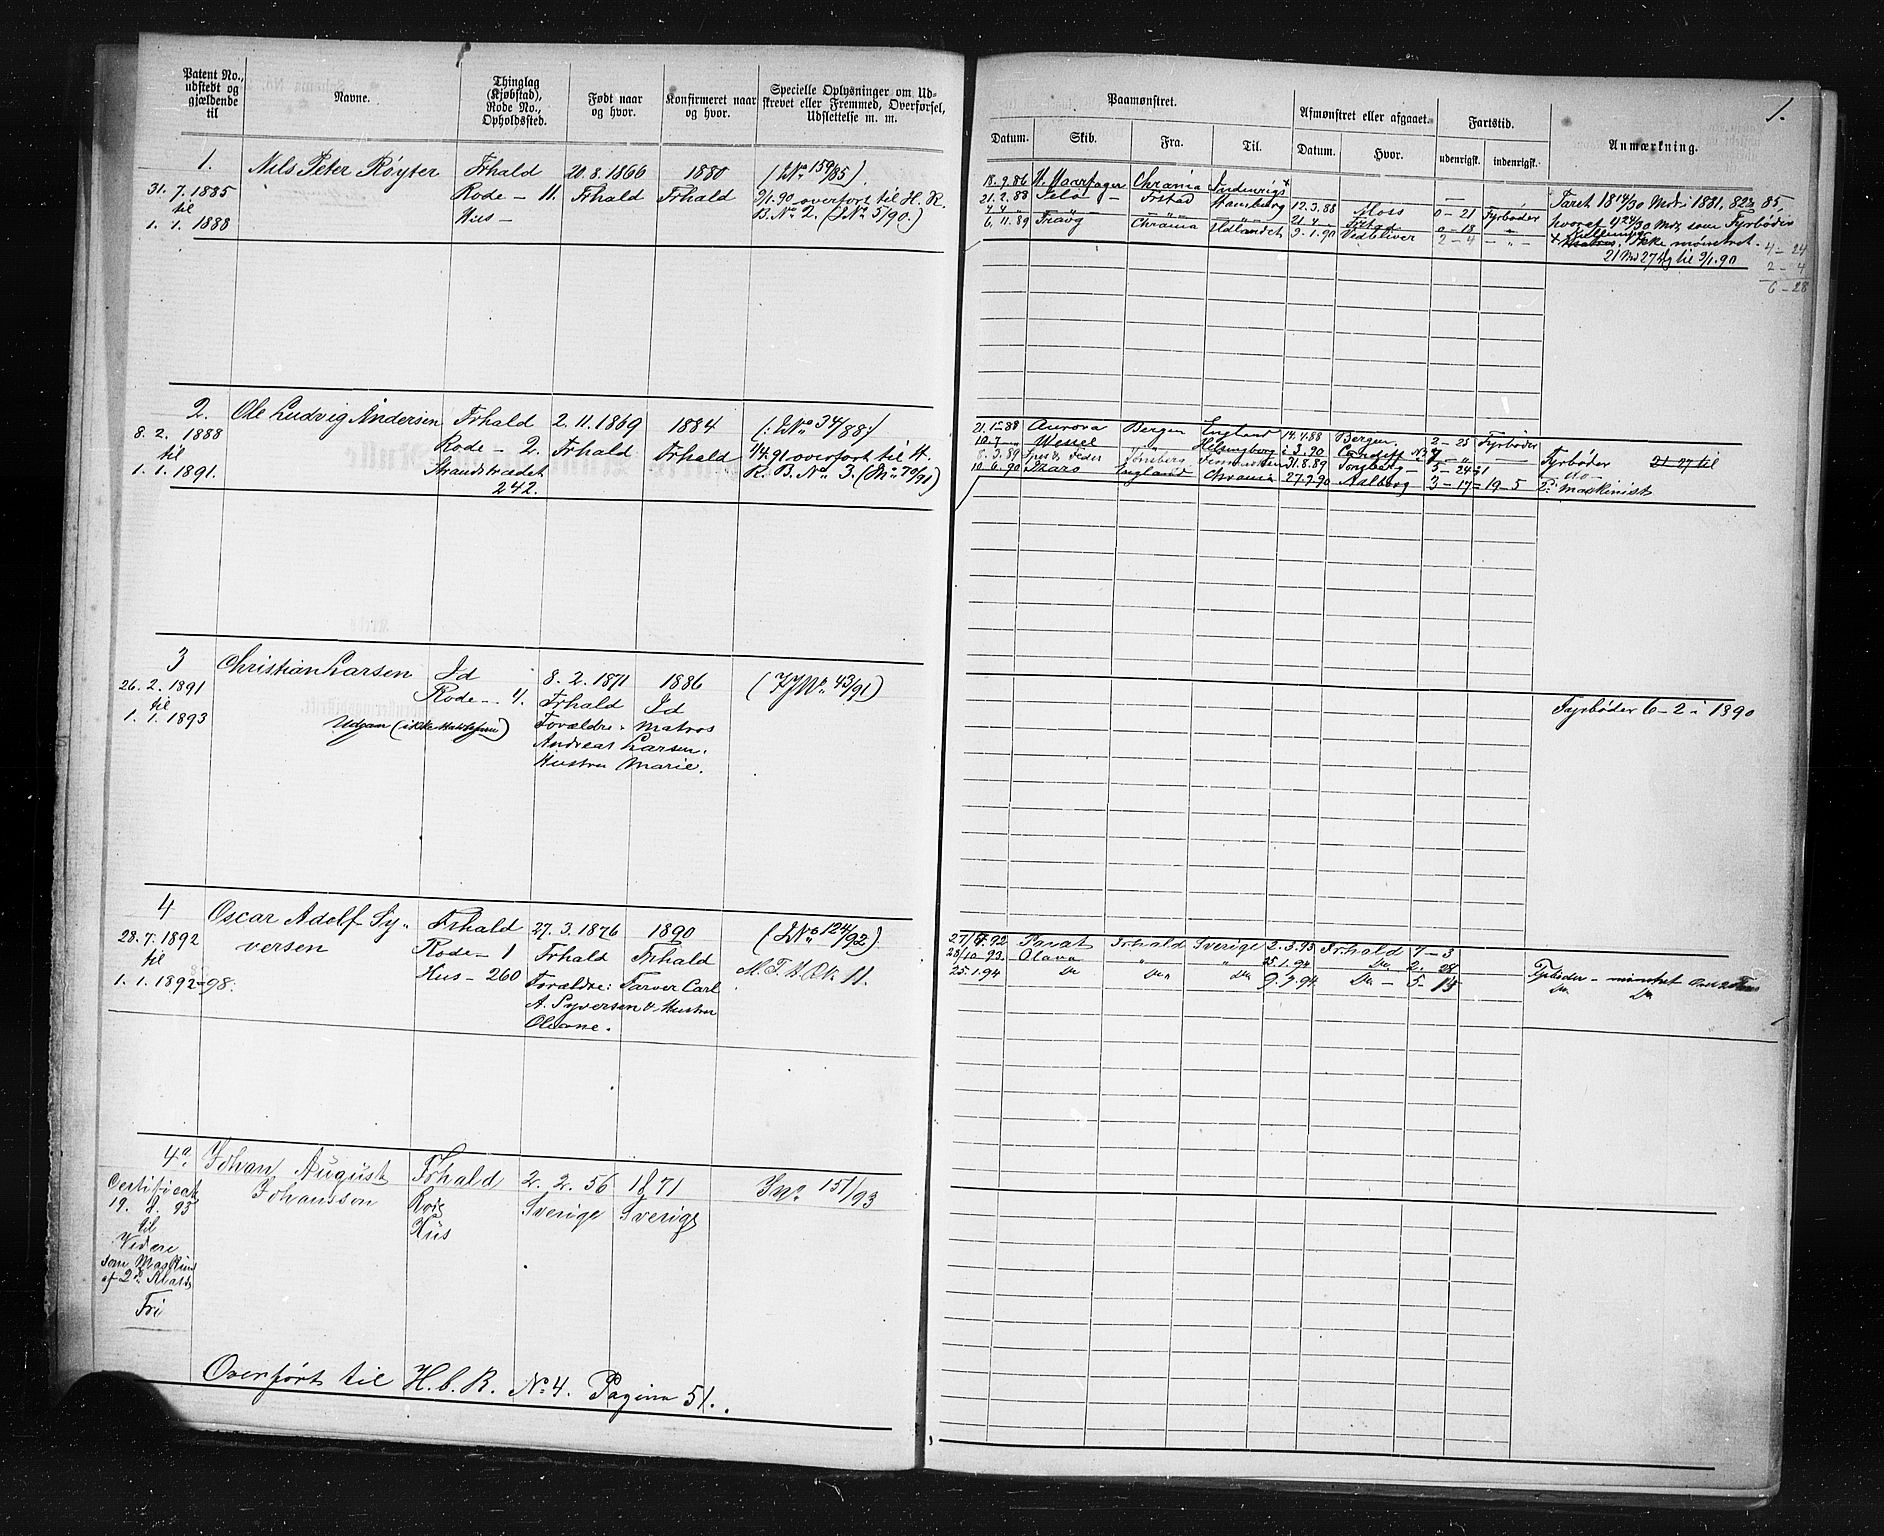 Patent No., udstedt og gjældende til
Navne.
Thinglag (Kjøbstad), Rode No., Opholdssted.
Født naar og hvor.
Konfirmeret naar og hvor.
Specielle Oplysninger om Udskrevet eller Fremmed, Overførsel, Udslettelse m. m.
1. Nils Peter Røyter Frhald 20.8.1866 1880 (JNo 159/85)
31.7.1885 Rode - 11. Frhald Frhald 9/1.90 overført til H. R.
til Hus - B. No 2. (JNo 5/90.)
1.1.1888
2. Ole Ludvig Andersen Frhald 2.11.1869 1884 (: JNo 34/88:)
8.2.1888 Rode - 2. Frhald Frhald 14/4.91 overført til H.
til Strandstrædet R. B. No 3. (JNo 70/91)
1.1.1891. 242.
3 Christian Larsen Id 8.2.1871 1886 (JNo 43/91)
26.2.1891 Rode - 4. Frhald Id
til Forældre: Matros
1.1.1893 Andreas Larsen.
Hustru Marie.
4 Oscar Adolf Sy- Frhald 27.3.1876 1890 (JNo 124/92)
28.7.1892 versen Rode - 1 Frhald Frhald
til Hus - 260 Forældre: Garver Carl
1.1.1892-98. A. Syversen & Hustru
Oleane.
4a. Johan August Frhald 2.2.56 1871 JNo 151/93
Certificat Johansson Rode Sverige Sverige
19.8.93 Hus
til
Videre
som Maskinist
af 2den Klasse
Fri
Overført til H. b. R. No 4. Pagina 51.
1.
Paamønstret.
Afmønstret eller afgaaet.
Fartstid.
Anmærkning.
Datum. Skib. Fra. Til. Datum. Hvor. udenrigsk. indenrigsk.
18.9.86 H. Haarfager Chrania Indenrigs
21.2.88 Selø Frstad Hamburg 12.3.88 Moss 0-21 Fyrbøder
4.4 " -"- -"- 21.4 " Frstad 0-18 "
6.11.89 Fraug Chrania Udlandet 9.1.90 Vedbliver 2-4 -"-
Faret 18 14/30 Mdr i 1881, 82 85
hvoraf 4 24/30 Mdr som Fyrbøder
Ikke mønstret
21 Md 27 Dg til 9/1.90
4-24
2-4
6-28
21.1-88 Aurora Bergen England 14.4.88 Bergen 2-25 Fyrbøder
10.7 " Wessel " Helsingborg 3.90 Cardiff
8.3.89 Tønsberg 31.8.89 Tønsberg 5-24
10.6.90 Mars England Chrania 27.9.90 Aalborg 3-17 = 19-5
Fyrbøder 21 27 til
do
2. Maskinist
Fyrbøder 6-2 i 1890
92 Frhald Sverige 2.3.93 Frhald 7-3
28/10 93 Olava " " 25.1.94 Do 2. 28
25.1.94 Do Do Do 9.7.94 Do - 5-15
Fyrbøder - mønstret
Do Do